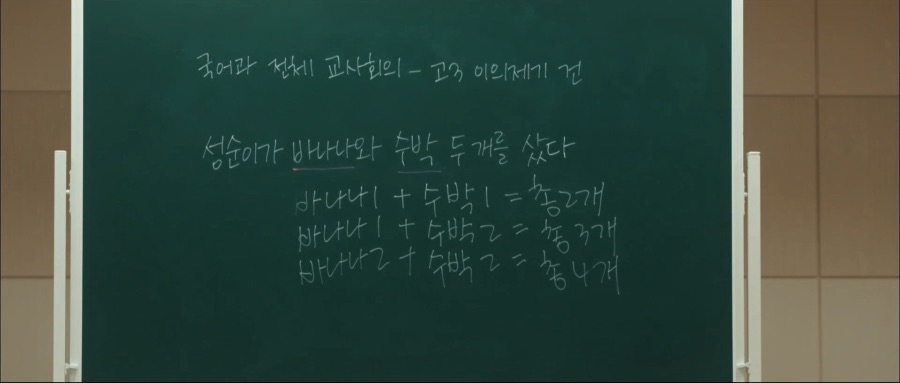 국어과 전체 교사회의 - 고3 이의제기 건
성순이가 바나나와 수박 두 개를 샀다
바나나1 + 수박1 = 총2개
바나나1 + 수박2 = 총3개
바나나2 + 수박2 = 총4개